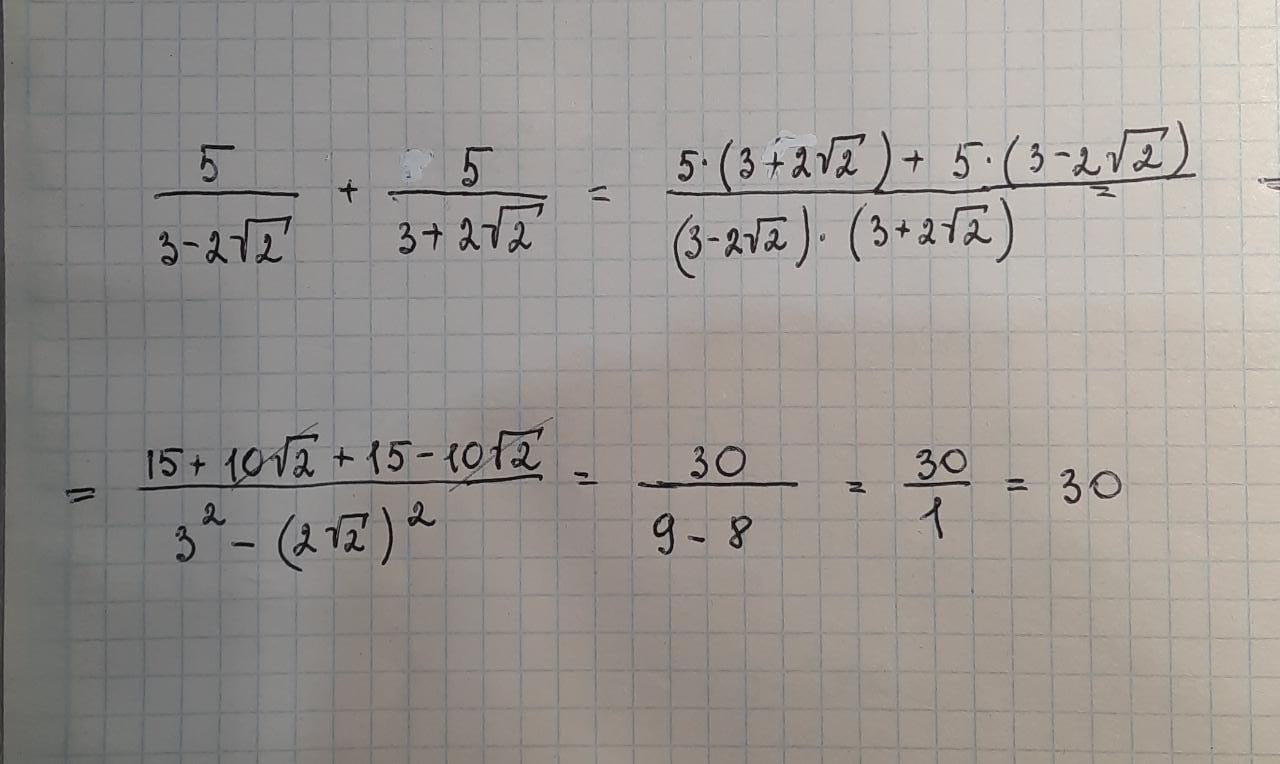 5/(3-2√2) + 5/(3+2√2) = (5·(3+2√2)+ 5·(3-2√2))/((3-2√2)·(3+2√2)) =
= (15+10√2+15-10√2)/(3²-(2√2)²) = 30/(9-8) = 30/1 = 30